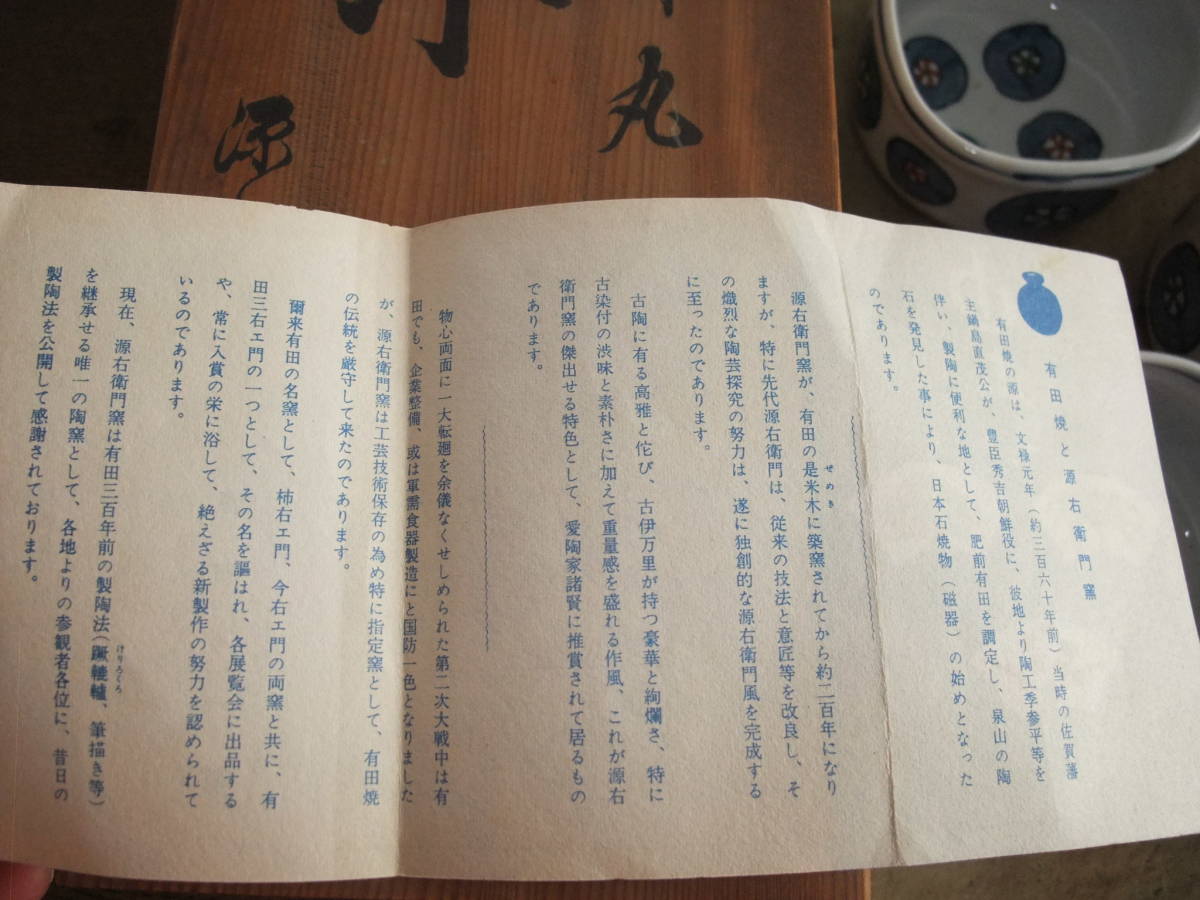 丸
源
有田焼と源右衛門窯
有田焼の源は、文禄元年（約三百六十年前）当時の佐賀藩
主鍋島直茂公が、豊臣秀吉朝鮮役に、彼地より陶工李参平等を
伴い、製陶に便利な地として、肥前有田を調定し、泉山の陶
石を発見した事により、日本石焼物（磁器）の始めとなった
のであります。
源右衛門窯が、有田の是米木に築窯されてから約二百年になり
せめき
ますが、特に先代源右衛門は、従来の技法と意匠等を改良し、そ
の熾烈な陶芸探究の努力は、遂に独創的な源右衛門風を完成する
に至ったのであります。
古陶に有る高雅と侘び、古伊万里が持つ豪華と絢爛さ、特に
古染付の渋味と素朴さに加えて重量感を盛れる作風、これが源右
衛門窯の傑出せる特色として、愛陶家諸賢に推賞されて居るもの
であります。
物心両面に一大転廻を余儀なくせしめられた第二次大戦中は有
田でも、企業整備、或は軍需食器製造にと国防一色となりました
が、源右衛門窯は工芸技術保存の為め特に指定窯として、有田焼
の伝統を厳守して来たのであります。
爾来有田の名窯として、柿右エ門、今右エ門の両窯と共に、有
田三右エ門の一つとして、その名を謳はれ、各展覧会に出品する
や、常に入賞の栄に浴して、絶えざる新製作の努力を認められて
いるのであります。
現在、源右衛門窯は有田三百年前の製陶法（蹶轆轤、筆描き等）
けりろくろ
を継承せる唯一の陶窯として、各地よりの参観者各位に、昔日の
製陶法を公開して感謝されております。